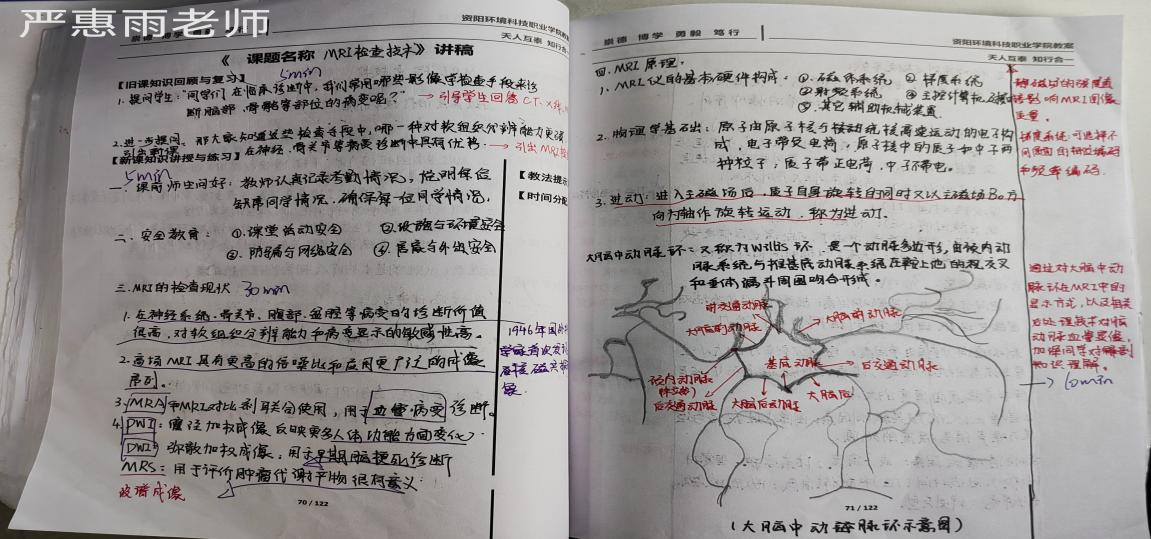 严惠雨老师
资阳环境科技职业学院教案
崇德 博学
天人互泰 知行合一
《 课题名称 MRI检查技术》讲稿
【旧课知识回顾与复习】5min
1. 提问学生:“同学们在临床诊断中,我们常用哪些影像学检查手段来诊
断脑部、骨骼等部位的病变呢?” → 引导学生回答CT、X线
2. 进一步提问,那大家知道这些检查手段中,哪一种对软组织分辨能力更强
引出新课 在神经、骨关节等病变诊断中具有优势. → 引出MRI
【新课知识讲授与练习】
5min
一、课前师生问好:教师认真记录考勤情况,
缺席同学情况,确保每一位同学情况.
【教法提示
【时间分配
二、安全教育: ①.课堂活动安全 ②.设施与环境安全
③.防骗与网络安全 ④.居家与外出安全
三.MRI的检查现状 30min
1. 在神经系统、骨关节、腹部、盆腔等病变的诊断价值
很高,对软组织分辨能力和病变显示的敏感性高。
1946年
2. 高场MRI具有更高的信噪比和应用更广泛的成像
序列。
3. MRA和MRI对比剂联合使用,用于血管病变诊断。
4. PWI:灌注加权成像 反映更多人体功能方面变化.
DWI:弥散加权成像,用于早期脑梗死诊断
MRS:用于评价肿瘤代谢产物很有意义.
波谱成像
70 / 122
崇德 博学 勇毅 笃行
资阳环境科技职业学院教案
天人互泰 知行合一
四.MRI原理.
1. MRI仪的基本硬件构成:①.磁体系统 ②梯度系统
③射频系统 ④主控计算机
⑤其它辅助机械装置.
静磁场的强度直
接影响MRI图像
质量.
梯度系统可选择不
同层面的相位编码
和频率编码.
2. 物理学基础:原子由原子核与绕核高速运动的电子构
成,电子带负电荷,原子核中的质子和中子两
种粒子,质子带正电荷,中子不带电.
3. 进动:进入主磁场后,质子自身旋转的同时又以主磁场B₀方
向为轴作旋转运动,称为进动.
大脑中动脉环:又称为Willis环,是一个动脉多边形,由颈内动
脉系统与椎基底动脉系统在鞍上池的视交叉
和垂体漏斗周围吻合形成.
通过对大脑中动
脉环在MRI中的
显示方式,以及相关
后处理技术对脑
动脉血管显像,
加强同学对解剖
知识理解.
→ 10min
前交通动脉
大脑前动脉
大脑前动脉
颈内动脉
基底动脉
后交通动脉
后交通动脉
大脑后动脉
大脑后
71 / 122
(大脑中动脉环示意图)